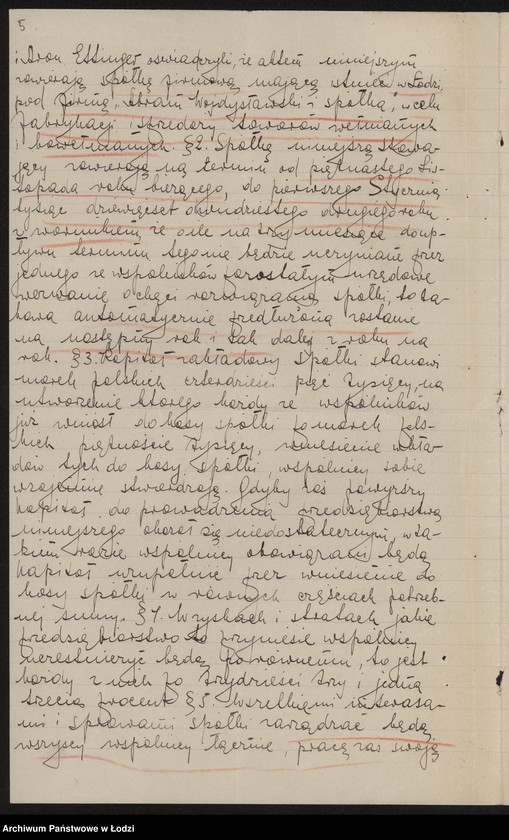 5
i Aron Ettinger oświadczyli, że aktem niniejszym
zawierają spółkę firmową mającą istnieć w Łodzi,
pod firmą "Abram Wojdysławski i spółka", w celu
fabrykacji i sprzedaży towarów wełnianych
i bawełnianych. §2. Spółkę niniejszą stawa-
jący zawierają na termin od piętnastego Lis-
topada roku bieżącego, do pierwszego Stycznia
tysiąc dziewięćset dwudziestego drugiego roku
z warunkiem, że o ile na trzy miesiące do up-
ływu terminu tego nie będzie uczynione przez
jednego ze wspólników pozostałym urzędowe
wezwanie o chęci rozwiązania spółki, to ta-
kowa automatycznie przedłużoną zostanie
na następny rok i tak dalej z roku na
rok. §3. Kapitał zakładowy spółki stanowi
marek polskich czterdzieści pięć tysięcy, na
utworzenie którego każdy ze wspólników
już wniósł do kasy spółki po marek pols-
kich piętnaście tysięcy, wniesienie wkła-
dów tych do kasy spółki, wspólnicy sobie
wzajemnie stwierdzają. Gdyby zaś powyższy
kapitał do prowadzenia przedsiębiorstwa
niniejszego okazał się niedostatecznym, w ta-
kim razie wspólnicy obowiązani będą
kapitał uzupełnić przez wniesienie do
kasy spółki w równych częściach potrzeb-
nej sumy. §4. W zyskach i stratach jakie
przedsiębiorstwo to przyniesie wspólnicy
uczestniczyć będą porównemu, to jest
każdy z nich po trzydzieści trzy i jedną
trzecią procent. §5. Wszelkiemi interesa-
mi i sprawami spółki zarządzać będą
wszyscy wspólnicy łącznie, pracę zaś swoją
Archiwum Państwowe w Łodzi